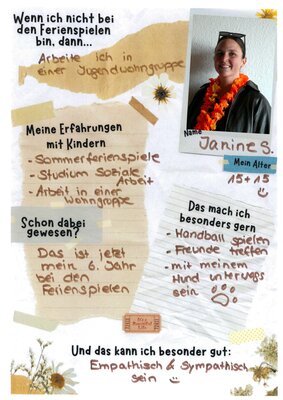 Wenn ich nicht bei
den Ferienspielen
bin, dann...
Arbeite ich in
einer Jugendwohngruppe
Name
Janine S.
Mein Alter
15+15
Meine Erfahrungen
mit Kindern
- Sommerferienspiele
- Studium Soziale
Arbeit
- Arbeit in einer
Wohngruppe
Schon dabei
gewesen?
Das ist jetzt
mein 6. Jahr
bei den
Ferienspielen
Das mach ich
besonders gern
- Handball spielen
- Freunde treffen
- mit meinem
Hund unterwegs
sein
Und das kann ich besonder gut:
Empathisch & Sympathisch
sein